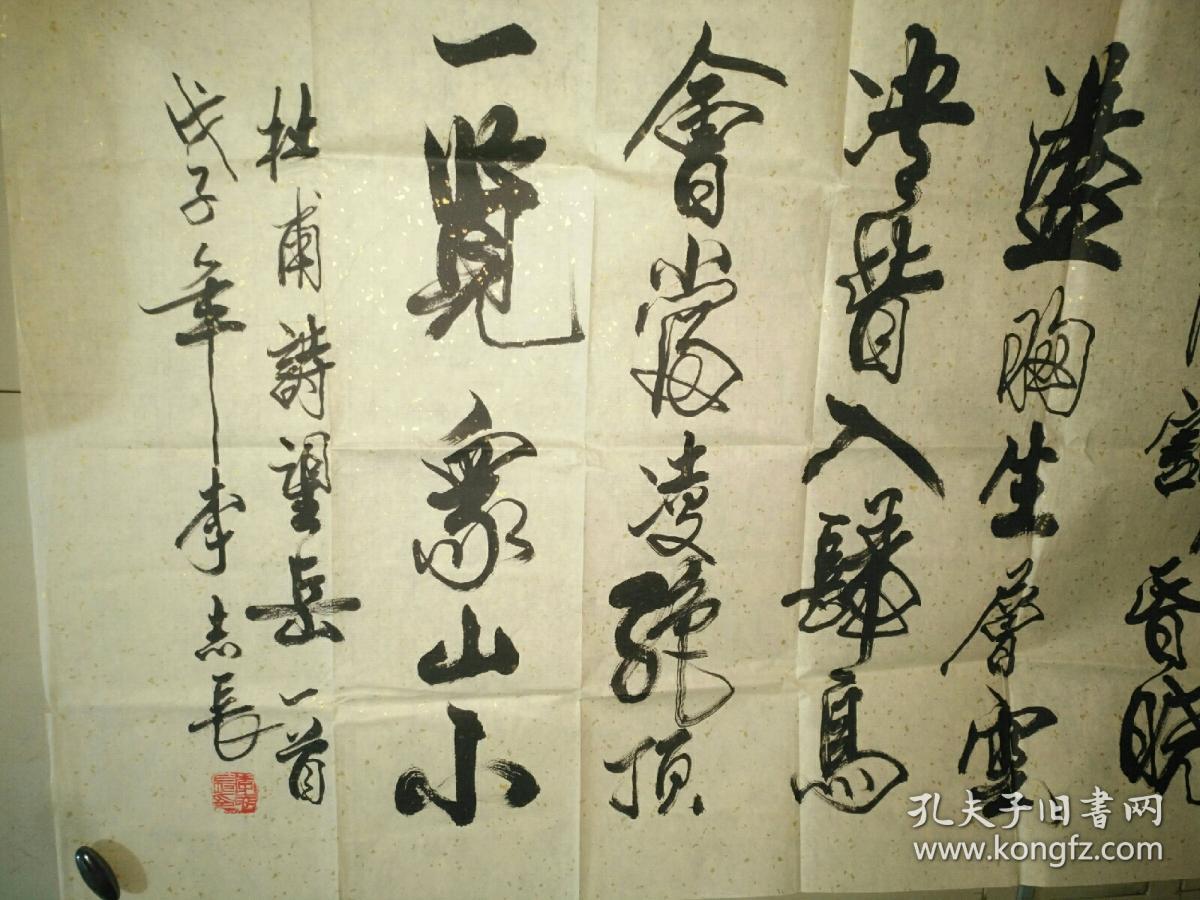 割昏晓
盪胸生層雲
决眥入歸鳥
會當凌絶顶
一览眾山小
杜甫詩望岳一首
戊子年李志長
孔夫子旧书网
www.kongfz.com